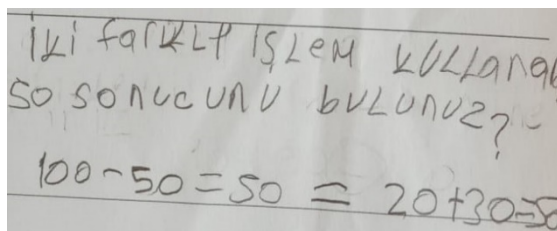 İKİ farKLı IŞLeM KULLanal
50 sonucunu buLunuz?-
100-50=50 = 20+30=50